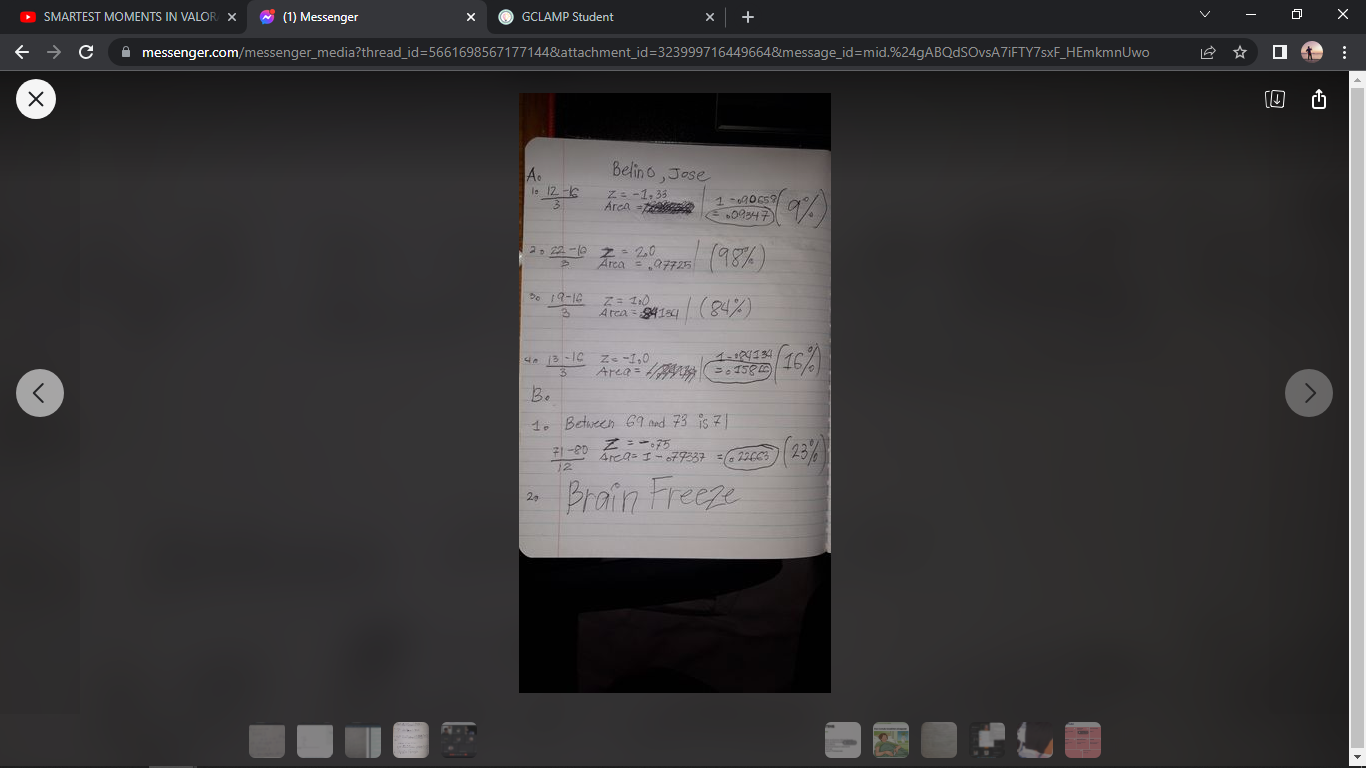 SMARTEST MOMENTS IN VALOR
(1) Messenger
GCLAMP Student
messenger.com/messenger_media?thread_id=5661698567177144&attachment_id=323999716449664&message_id=mid.%24gABQdSOvsA7iFTY7sxF_HEmkmnUwo
Belino, Jose
A.
1. 12-16 / 3 Z = -1.33 1 - .90658
Area = = .09347 (9%)
2. 22-16 / 3 Z = 2.0
Area = .97725 (98%)
3. 19-16 / 3 Z = 1.0
Area = .84134 (84%)
4. 13-16 / 3 Z = -1.0 1 - .84134
Area = = .1584 (16%)
B.
1. Between 69 and 73 is 71
71-80 / 12 Z = -.75
Area = 1 - .77337 = .22663 (23%)
2. Brain Freeze